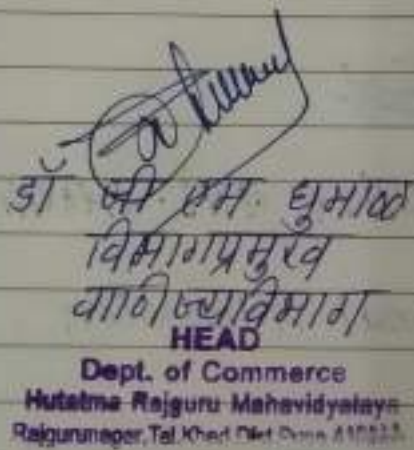 डॉ जी. एम. धुमाळ
विभागप्रमुख
वाणिज्यविभाग
HEAD
Dept. of Commerce
Hutatma Rajguru Mahavidyalaya
Rajgurunager, Tal. Khed Dist Pune